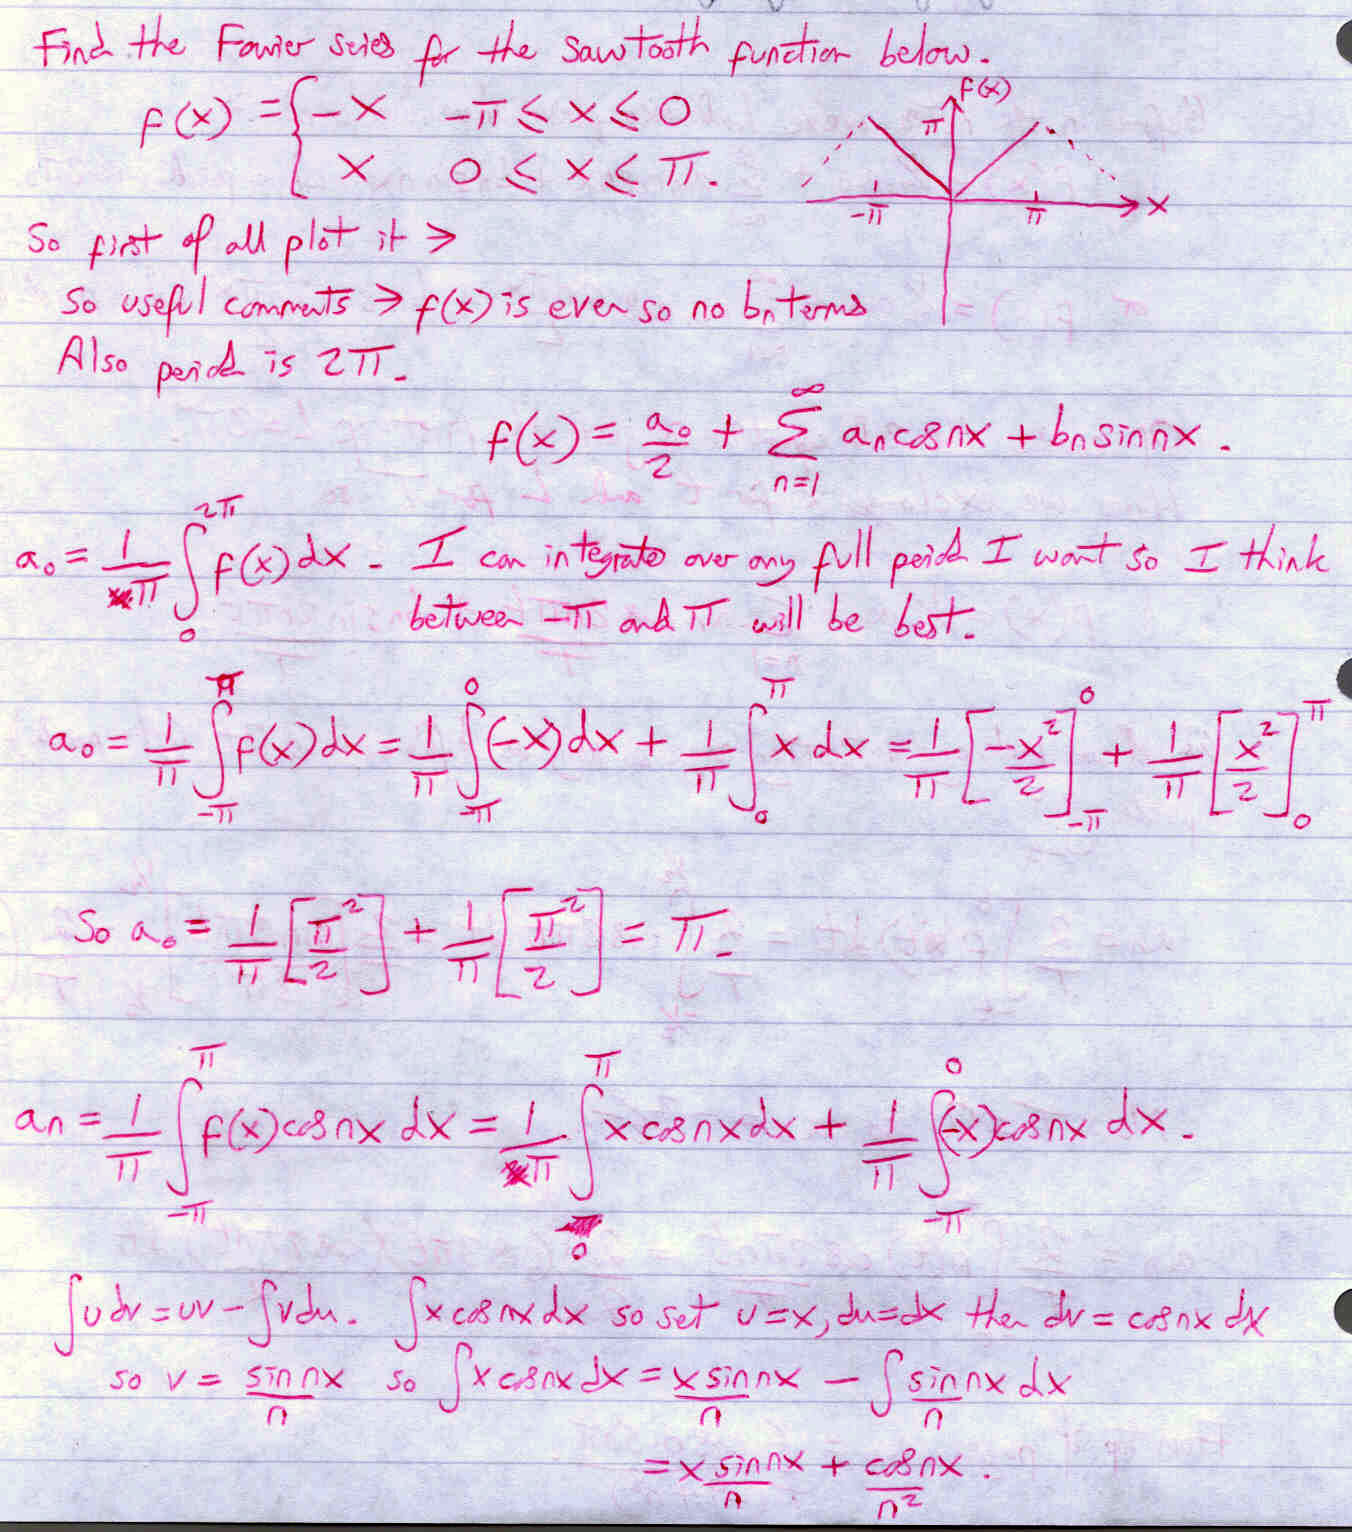 Find the Fourier series for the sawtooth function below.
f(x) = { -x   -π ≤ x ≤ 0
x   0 ≤ x ≤ π.
f(x)
π
-π   π   x
So first of all plot it →
So useful comments → f(x) is even so no bₙ terms
Also period is 2π.
f(x) = a₀/2 + ∑_{n=1}^{∞} aₙ cos nx + bₙ sin nx.
a₀ = 1/π ∫_0^{2π} f(x) dx. I can integrate over any full period I want so I think
between -π and π will be best.
a₀ = 1/π ∫_{-π}^{π} f(x) dx = 1/π ∫_{-π}^{0} (-x) dx + 1/π ∫_0^{π} x dx = 1/π [-x²/2]_{-π}^{0} + 1/π [x²/2]_0^{π}
So a₀ = 1/π [π²/2] + 1/π [π²/2] = π.
aₙ = 1/π ∫_{-π}^{π} f(x) cos nx dx = 1/π ∫_0^{π} x cos nx dx + 1/π ∫_{-π}^{0} (-x) cos nx dx.
∫u dv = uv - ∫v du. ∫x cos nx dx so set u = x, du = dx then dv = cos nx dx
so v = sin nx/n so ∫x cos nx dx = x sin nx/n - ∫ sin nx/n dx
= x sin nx/n + cos nx/n².